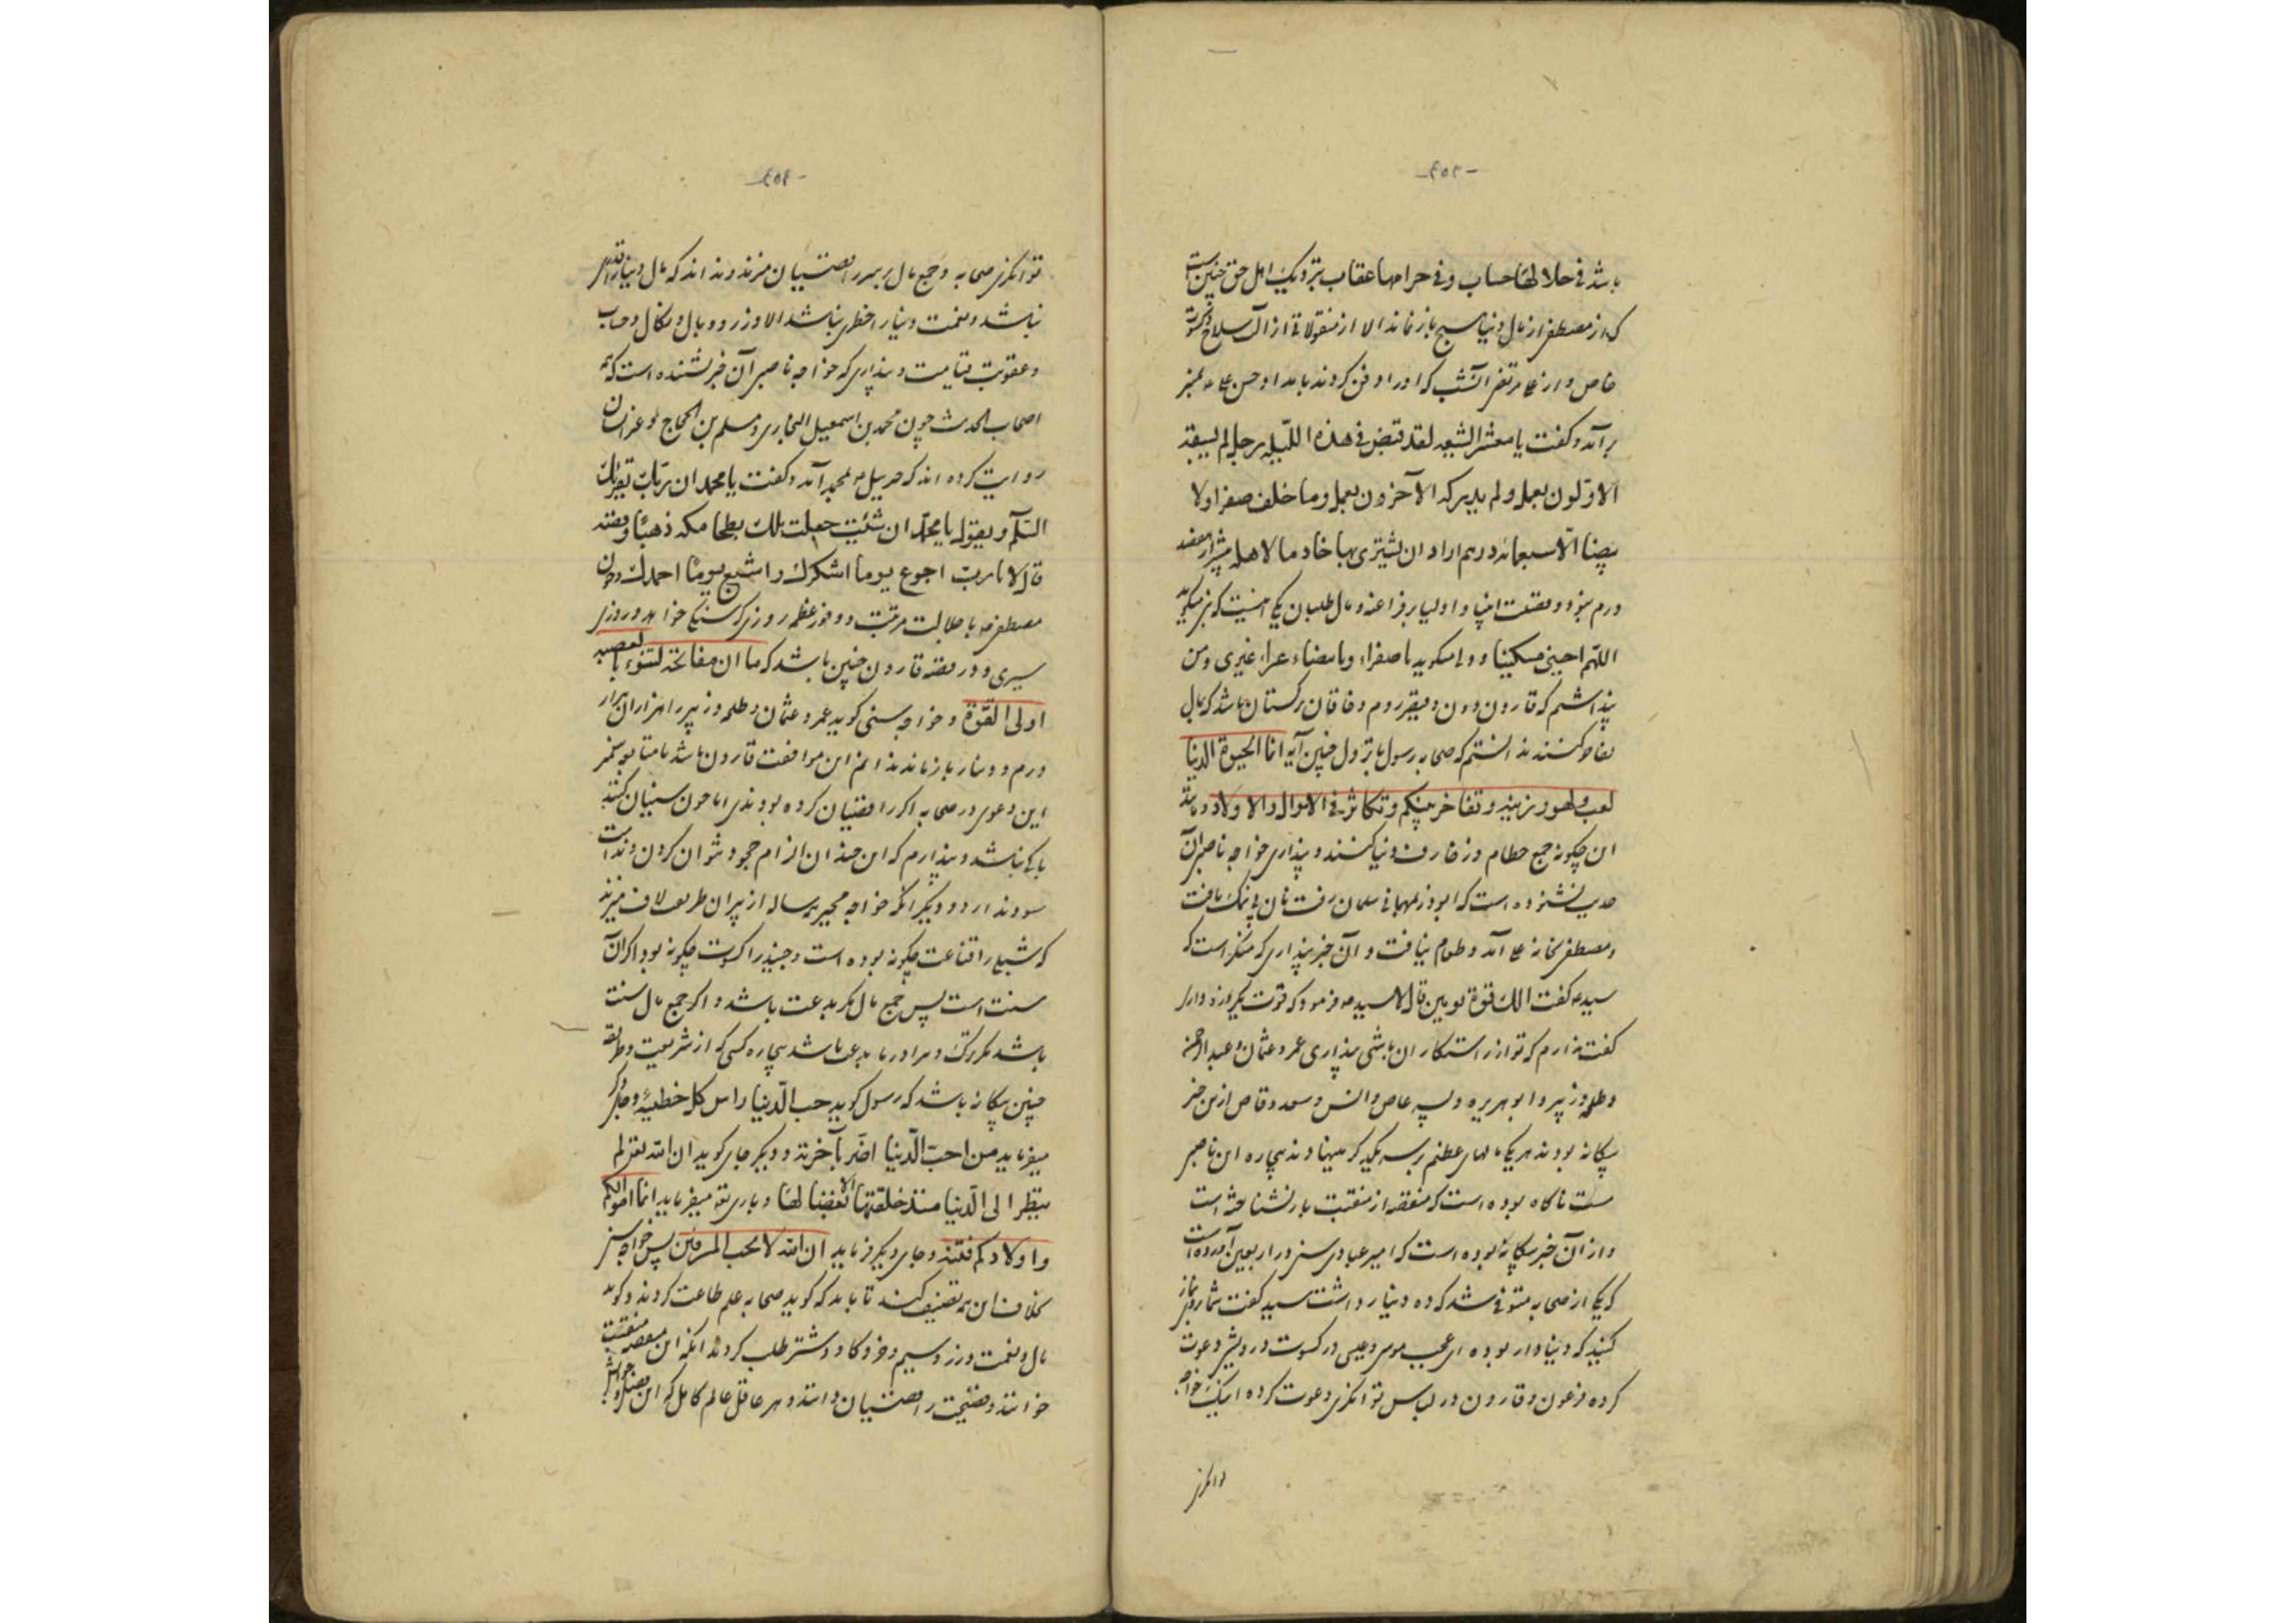 -۴۵۳-
باشد فی حلالها حساب و فی حرامها عقاب بنزدیک اهل حق چنین است
که از مصطفی از مال دنیا هیچ باز نماند الا از منقولاتی از آلت سلاح و کسوت
خاص و از علی مرتضی آن شب که او را دفن کردند بامداد حسن علی ع بمنبر
بر آمد و گفت یا معشر الشیعه لقد قبض فی هذه اللیله رجل لم یسبقه
الاوّلون بعمل و لم یدرکه الآخرون بعمل و ما خلف صفراء ولا
بیضاء الّا سبعمائه درهم اراد ان یشتری بها خادما لاهله بیش از هفصد
درم نبود و فضلت انبیا و اولیا بر فراعنه و مال طلبان یکی اینست که نبی میگوید
اللهم احینی مسکینا و ولی میگوید یا صفراء و یا بیضاء غرا غیری و من
پنداشتم که قارون دون و قیصر روم و خاقان ترکستان باشد که بمال
تفاخر کنند ندانستم که صحابه رسول با نزول چنین آیه انما الحیوة الدنیا
لعب و لهو و زینة و تفاخر بینکم و تکاثر فی الاموال والاولاد و مانند
این چگونه جمع حطام و زخارف دنیا کنند و پنداری خواجه ناصبی آن
حدیث نشنوده است که ابوذر بمهمانی سلمان رفت نان بی نمک یافت
و مصطفی بخانه علی آمد و طعام نیافت و آن خبر پنداری که منکر است که
سید ع گفت الک قوة یومین قال لا سید ع فرمود که قوت یکروزه داری
گفت ندارم که تو از رستکاران باشی پنداری عمر و عثمان و عبد الرحمن
و طلحه و زبیر و ابو هریره و پسر عاص و انس و سعد وقاص ازین خبر
بیگانه بودند هر یکی مالهای عظیم بر سر یکدیگر مینهادند بیچاره این ناصبی
مست ناگاه بوده است که منقصه از منقبت باز نشناخته است
و از آن خبر بیگانه بوده است که امیر عبادی سنی در اربعین آورده است
که یکی از صحابه متوفی شد که ده دینار داشت سید گفت شما برو نماز
کنید که دنیادار بوده ای عجب موسی و عیسی در کسوت درویشی دعوت
کرده فرعون و قارون در لباس توانگری دعوت کرده اینک خواجه
توانگری
-۴۵۴-
توانگری صحابه و جمع مال بر سر رافضیان میزند و نداند که مال دنیا را قدری
نباشد و نعمت دنیا را خطری نباشد الا وزر و وبال و نکال و حساب
و عقوبت قیامت و پنداری که خواجه ناصبی آن خبر نشنیده است که
اصحاب الحدیث چون محمد بن اسمعیل البخاری و مسلم بن الحجاج و غیر ایشان
روایت کرده اند که جبرییل ع بمحمد آمد و گفت یا محمد ان ربک یقرئک
السّلم و یقول یا محمّد ان شئت جعلت لک بطحا مکه ذهبًا و فضه
قال لا یا ربّ اجوع یوما اشکرک و اشبع یومًا احمدک
مصطفی ع با جلالت مرتبت و وفور عظمه روزی گرسنگی خواهد و روزی
سیری و در قصه قارون چنین باشد که ما ان مفاتحه لتنوء بالعصبه
اولی القوّة و خواجه سنی گوید عمر و عثمان و طلحه و زبیر را هزاران هزار
درم و دینار باز ماند ندانم این موافقت قارون باشد یا متابعت پیغمبر
این دعوی در صحابه اگر رافضیان کرده بودندی اما چون سنیان کنند
باکی نباشد و پندارم که این چندان الزام حجود نتوان کردن و انداخت
سود ندارد و دیگر آنکه خواجه مجبر همه ساله از پیران طریقت لاف میزند
که شبلی را قناعت چگونه بوده است و جنید را کسوت چگونه بود اگر آن
سنت است پس جمع مال مگر بدعت باشد و اگر جمع مال سنت
باشد مگر ترک و مرادر ما بدعت باشد بیچاره کسی که از شریعت و طریقه
چنین بیگانه باشد که رسول گوید حب الدّنیا راس کل خطیئة و جای دگر
میفرماید من احبّ الدّنیا اضّر بآخرته و دیگر جای گوید ان الله تعالی لم
ینظر الی الدّنیا منذ خلقتها الا بغضا لها و باری تع میفرماید انما اموالکم
و اولادکم فتنه و جای دیگر فرماید ان الله لا یحب المسرفین پس خواجه سنی
بخلاف این همه تصنیف کند تا باید که گوید صحابه علم طاعت کردند و گوید
مال و نعمت و زر و سیم و خر و گاو و شتر طلب کردند آنکه این منقصه منقبت
خوانند و فضیحت رافضیان دانند و هر عاقل عالم کامل که این